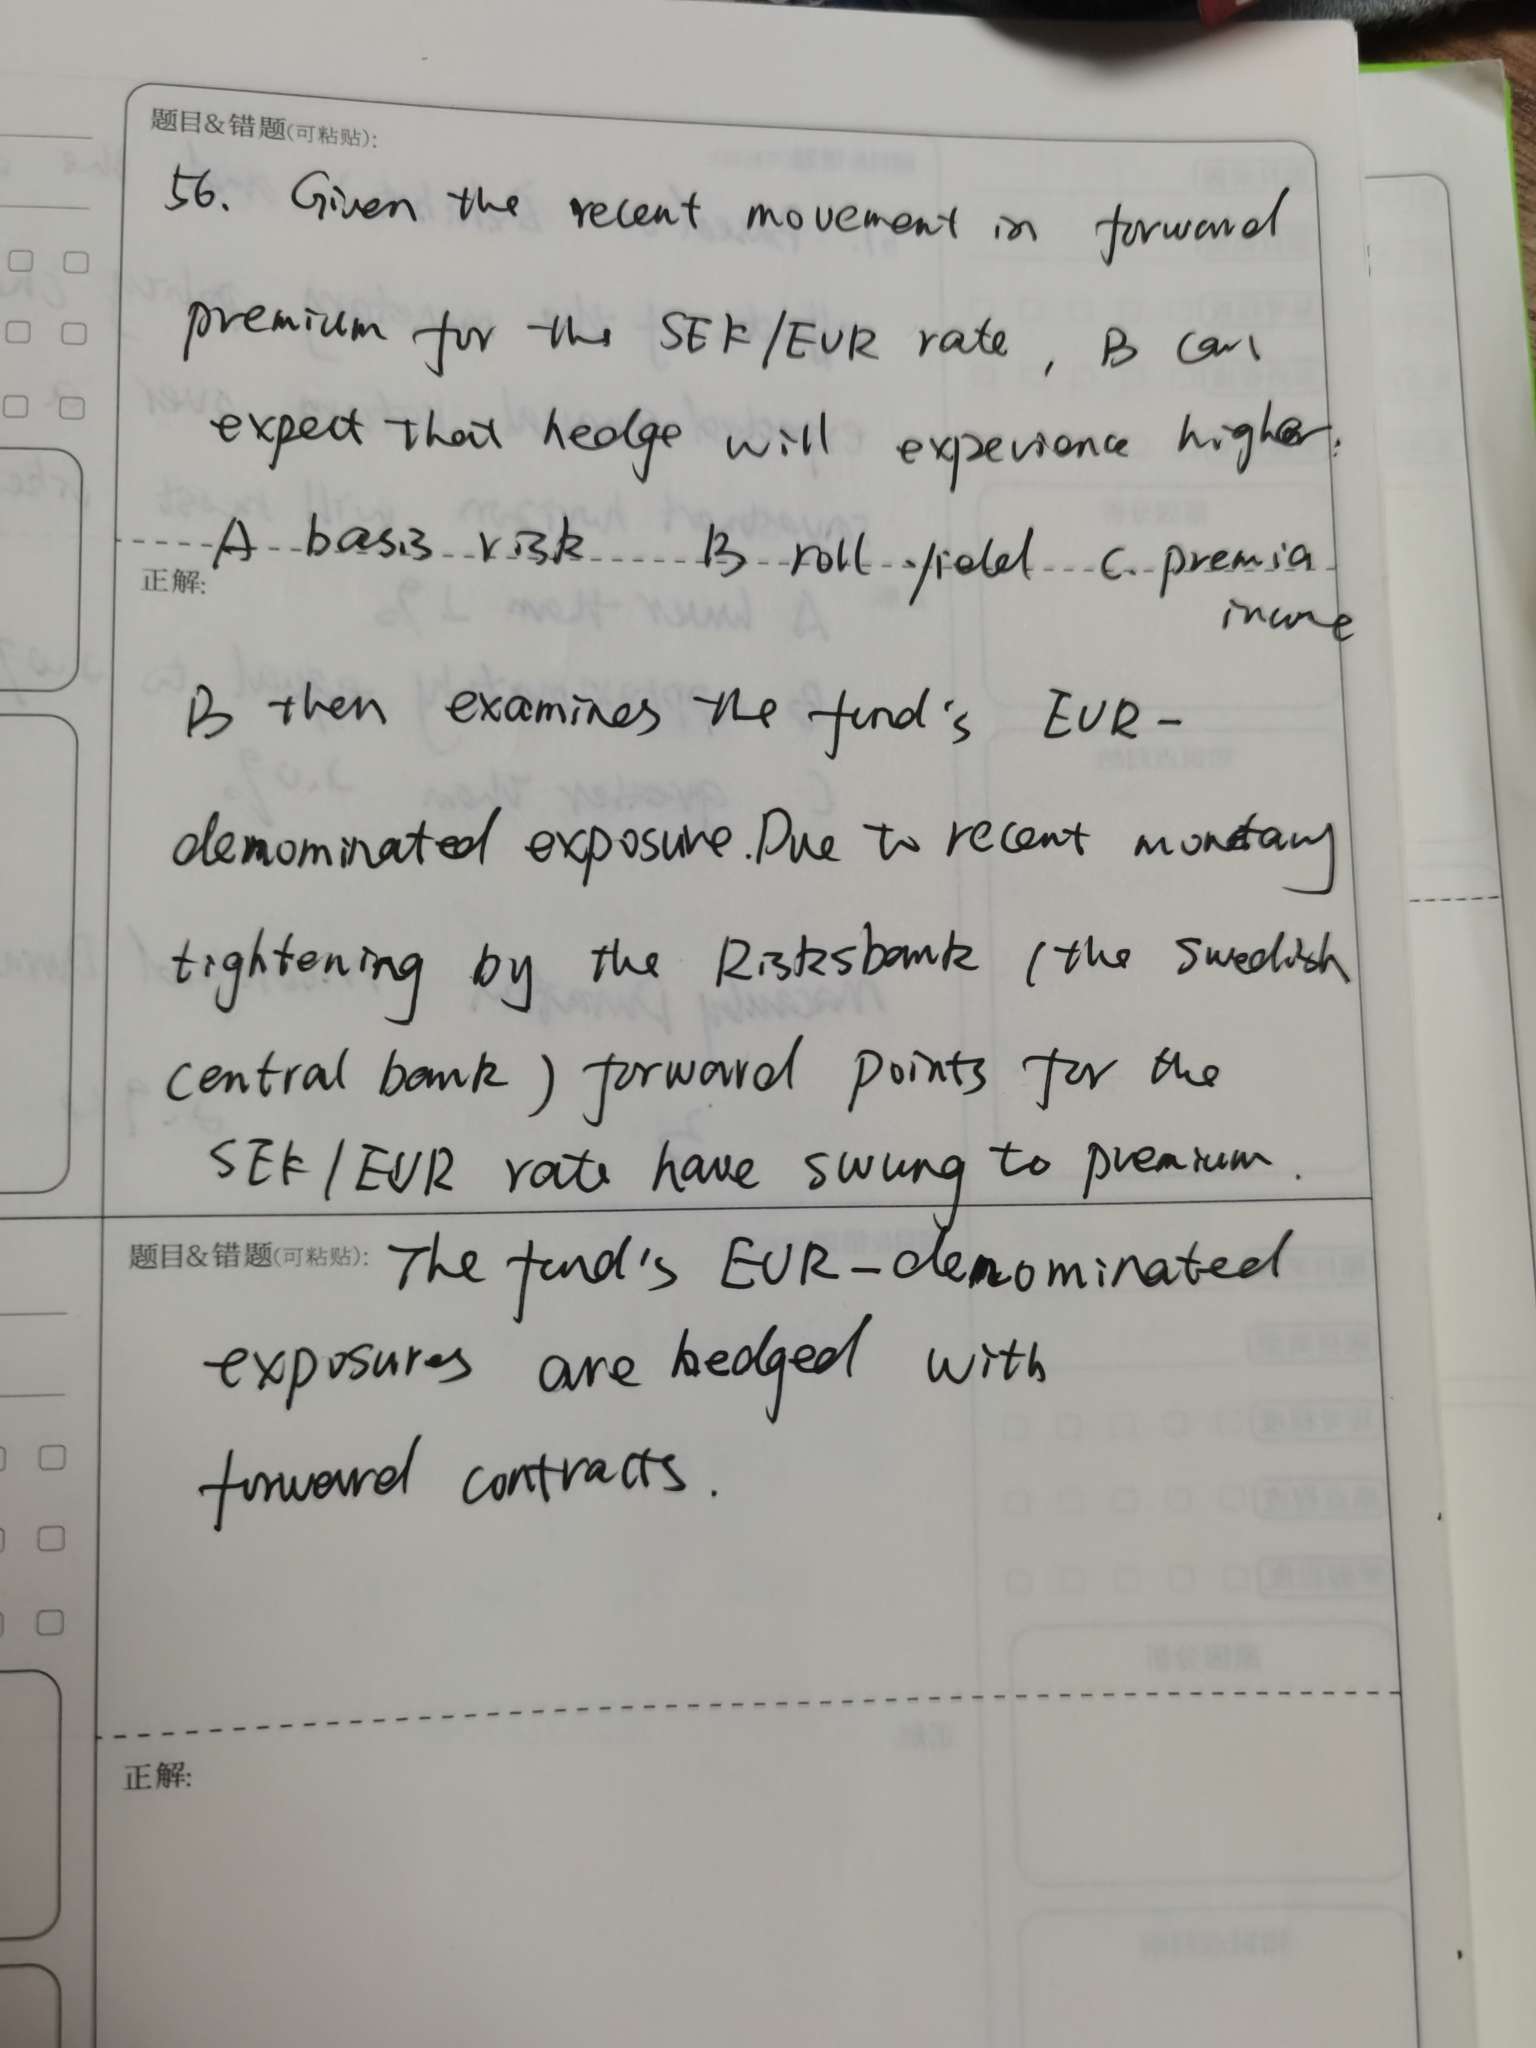 题目&错题(可粘贴):
56. Given the recent movement in forward
premium for the SEK/EUR rate, B can
expect that hedge will experience higher:
A basis risk B roll yield C. premia
income
正解:
B then examines the fund's EUR-
denominated exposure. Due to recent monetary
tightening by the Risksbank (the Swedish
central bank) forward points for the
SEK/EUR rate have swung to premium.
题目&错题(可粘贴): The fund's EUR-denominated
exposures are hedged with
forward contracts.
正解: